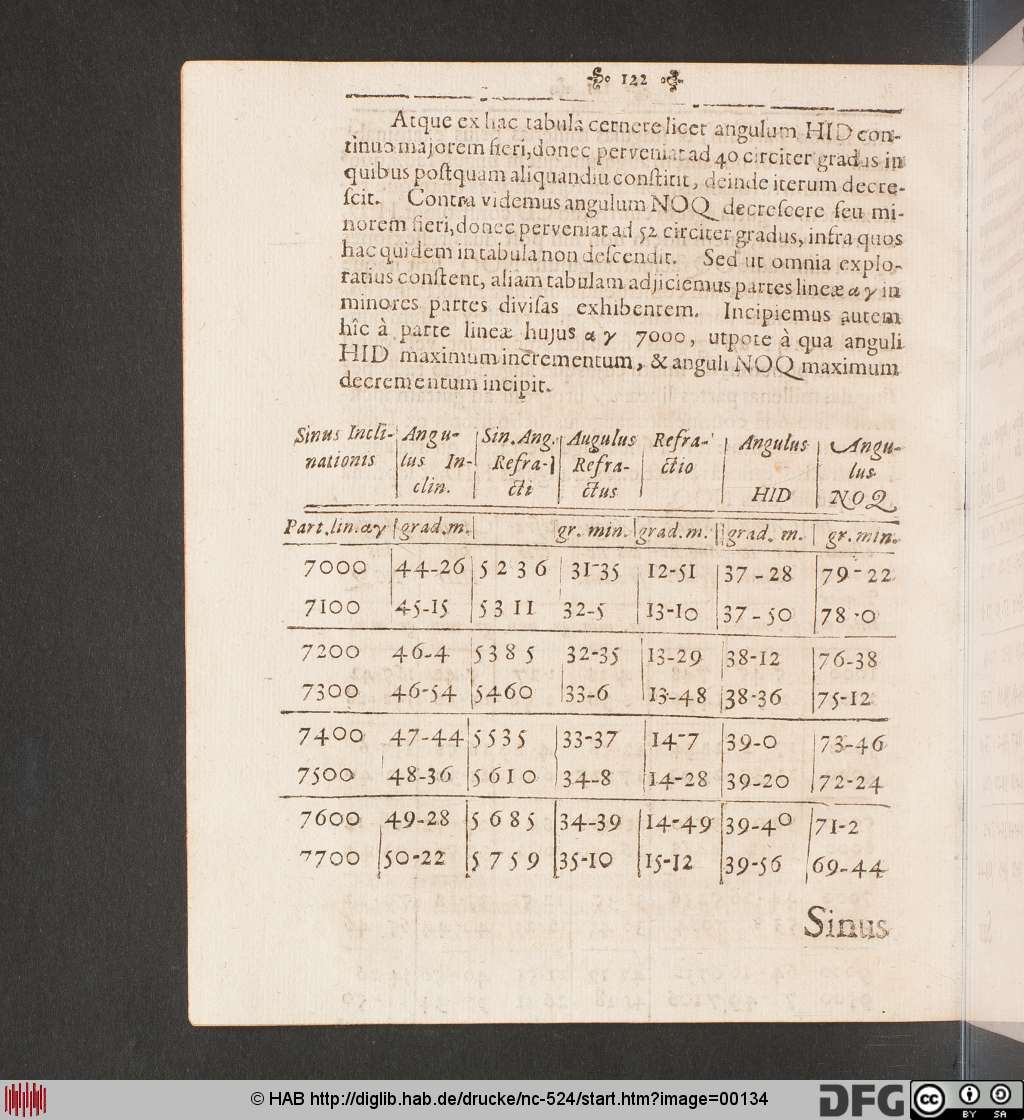 122
Atque ex hac tabula cernere licet angulum HID con-
tinuo majorem fieri, donec perveniat ad 40 circiter gradus in
quibus poſtquam aliquandiu conſtitit, deinde iterum decre-
ſcit. Contra videmus angulum NOQ decreſcere ſeu mi-
norem fieri, donec perveniat ad 52 circiter gradus, infra quos
hac quidem in tabula non deſcendit. Sed ut omnia explo-
ratius conſtent, aliam tabulam adjiciemus partes lineæ α γ in
minores partes diviſas exhibentem. Incipiemus autem
hîc à parte lineæ hujus α γ 7000, utpote à qua anguli
HID maximum incrementum, & anguli NOQ maximum
decrementum incipit.
Sinus Incli- Angu- Sin. Ang. Augulus Refra- Angulus Angu-
nationis lus In- Refra- Refra- ctio lus
clin. cti ctus HID NOQ
Part. lin. αγ grad. m. gr. min. grad. m. grad. m. gr. min.
7000 44-26 5236 31-35 12-51 37-28 79-22
7100 45-15 5311 32-5 13-10 37-50 78-0
7200 46-4 5385 32-35 13-29 38-12 76-38
7300 46-54 5460 33-6 13-48 38-36 75-12
7400 47-44 5535 33-37 14-7 39-0 73-46
7500 48-36 5610 34-8 14-28 39-20 72-24
7600 49-28 5685 34-39 14-49 39-40 71-2
7700 50-22 5759 35-10 15-12 39-56 69-44
Sinus
© HAB http://diglib.hab.de/drucke/nc-524/start.htm?image=00134
DFG
cc BY SA